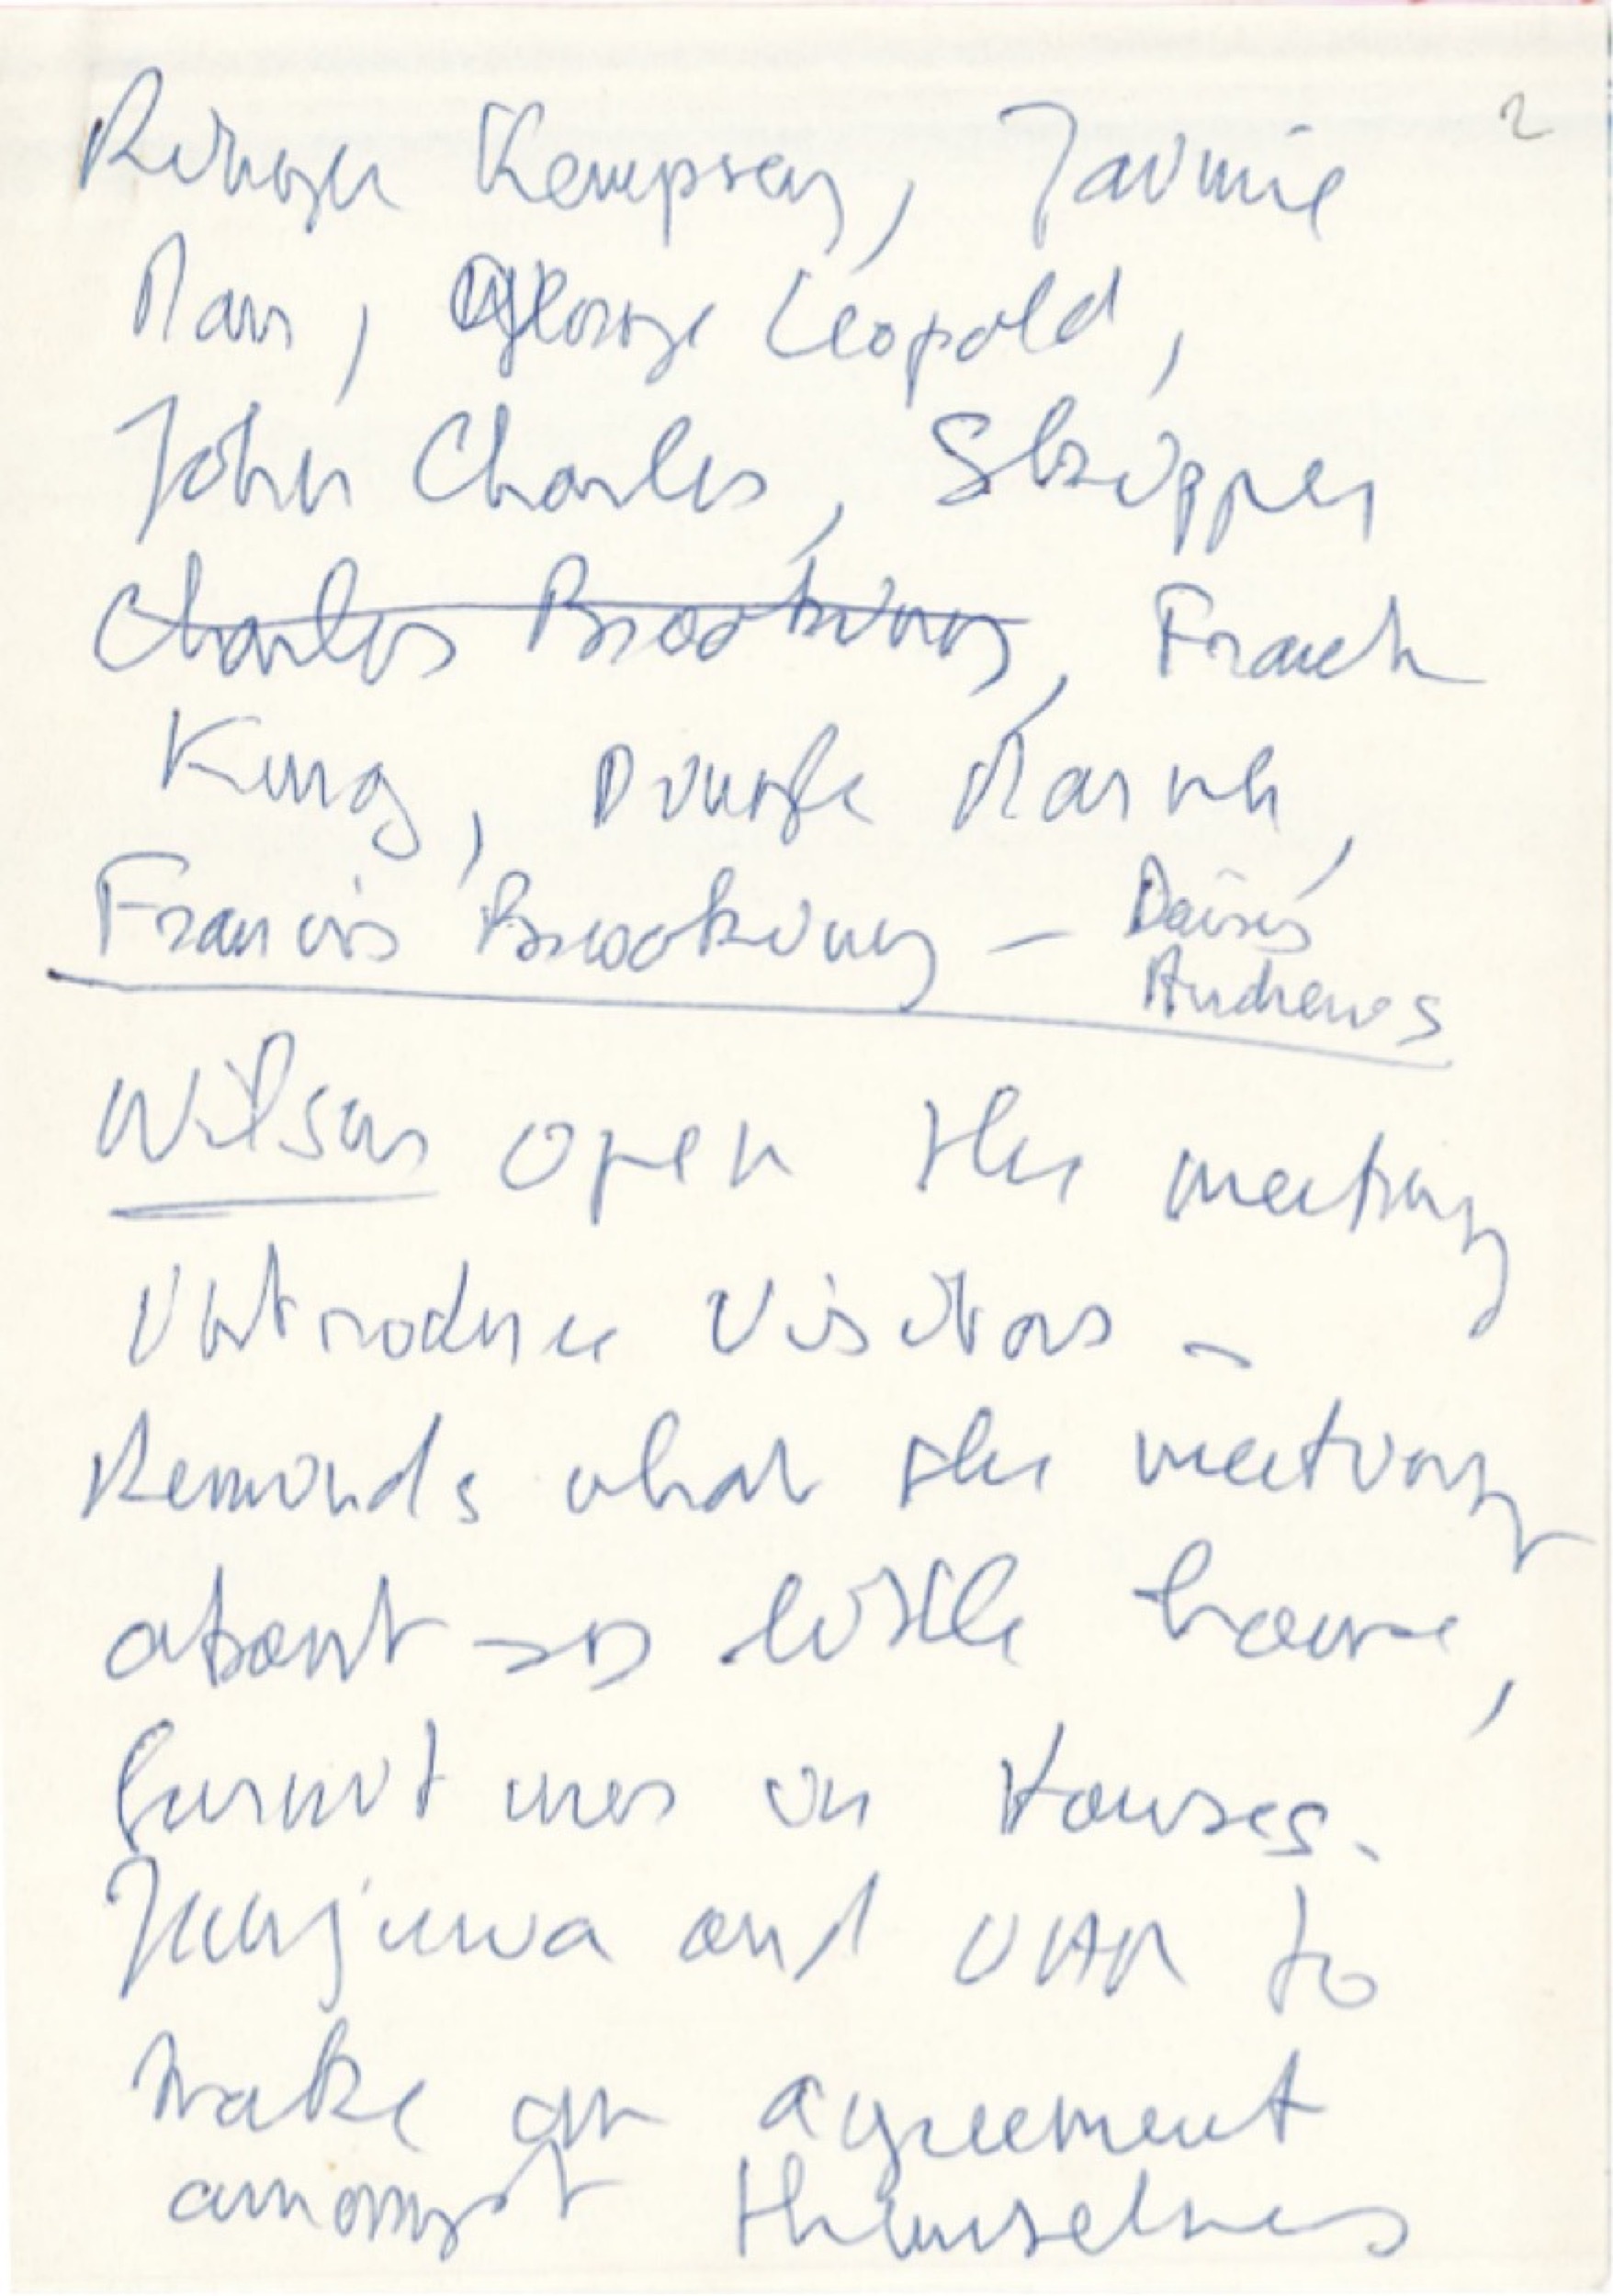 2
Kempsey, Jaimie
George Leopold,
John Charles, Skipper
Charles Brooking, Frank
King,
Francis Brooking – Daisy
Andrews
Wilson open the meeting
Introduce visitors –
Reminds what the meeting
about – as little house,
furnitures in Houses.
Junjuwa and UAM to
make an agreement
amongst themselves